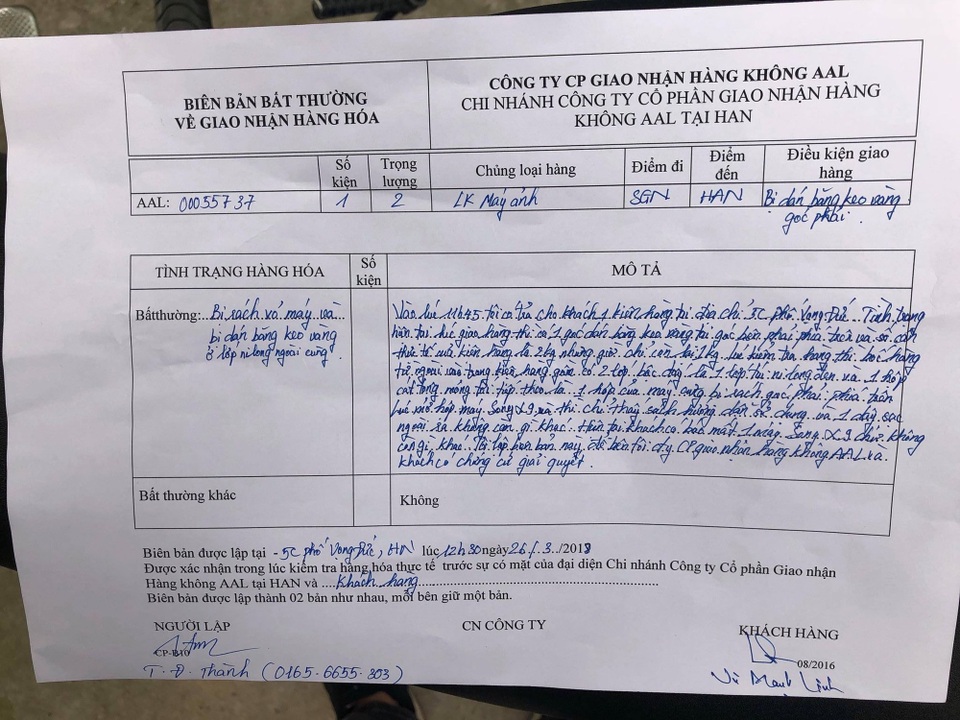 BIÊN BẢN BẤT THƯỜNG
VỀ GIAO NHẬN HÀNG HÓA
CÔNG TY CP GIAO NHẬN HÀNG KHÔNG AAL
CHI NHÁNH CÔNG TY CỔ PHẦN GIAO NHẬN HÀNG
KHÔNG AAL TẠI HAN
Số kiện
Trọng lượng
Chủng loại hàng
Điểm đi
Điểm đến
Điều kiện giao hàng
AAL: 0005573 7 1 2 LK Máy ảnh SGN HAN Bị dán băng keo vàng
góc phải.
TÌNH TRẠNG HÀNG HÓA
Số kiện
MÔ TẢ
Bất thường:.. Bị rách vỏ máy và
bị dán băng keo vàng
ở lớp ni long ngoài cùng
Vào lúc 11h45 tôi có trả cho khách 1 kiện hàng tại địa chỉ 5C phố Vọng Đức. Tình trạng
hiện tại lúc giao hàng thì có 1 góc dán băng keo vàng tại góc bên phải phía trên và số cân
thực tế của kiện hàng là 2kg nhưng giờ chỉ còn lại 1kg. Lúc kiểm tra hàng thì bóc hàng
từ ngoài vào trong kiện hàng gồm có 2 lớp bọc đây là 1 lớp túi ni long đen và 1 hộp
cát tông mỏng tôi tiếp theo là 1 hộp của máy cũng bị rách góc phải phía trên
Lúc mở hộp máy Sony X9 ra thì chỉ thấy sách hướng dẫn sử dụng và 1 dây sạc
ngoài ra không còn gì khác. Hiện tại khách có báo mất 1 máy Sony X9 chứ không
còn gì khác. Tôi lập biên bản này để bên tôi cty CP giao nhận hàng không AAL và
khách có chứng cứ giải quyết.
Bất thường khác
Không
Biên bản được lập tại - 5C phố Vọng Đức, HN lúc 12h30 ngày 26/.3../2018
Được xác nhận trong lúc kiểm tra hàng hóa thực tế trước sự có mặt của đại diện Chi nhánh Công ty Cổ phần Giao nhận
Hàng không AAL tại HAN và ....Khách hàng....
Biên bản được lập thành 02 bản như nhau, mỗi bên giữ một bản.
NGƯỜI LẬP
CN CÔNG TY
KHÁCH HÀNG
CP-B10
08/2016
T. Đ. Thành (0165.6655.303)
Vũ Mạnh Linh